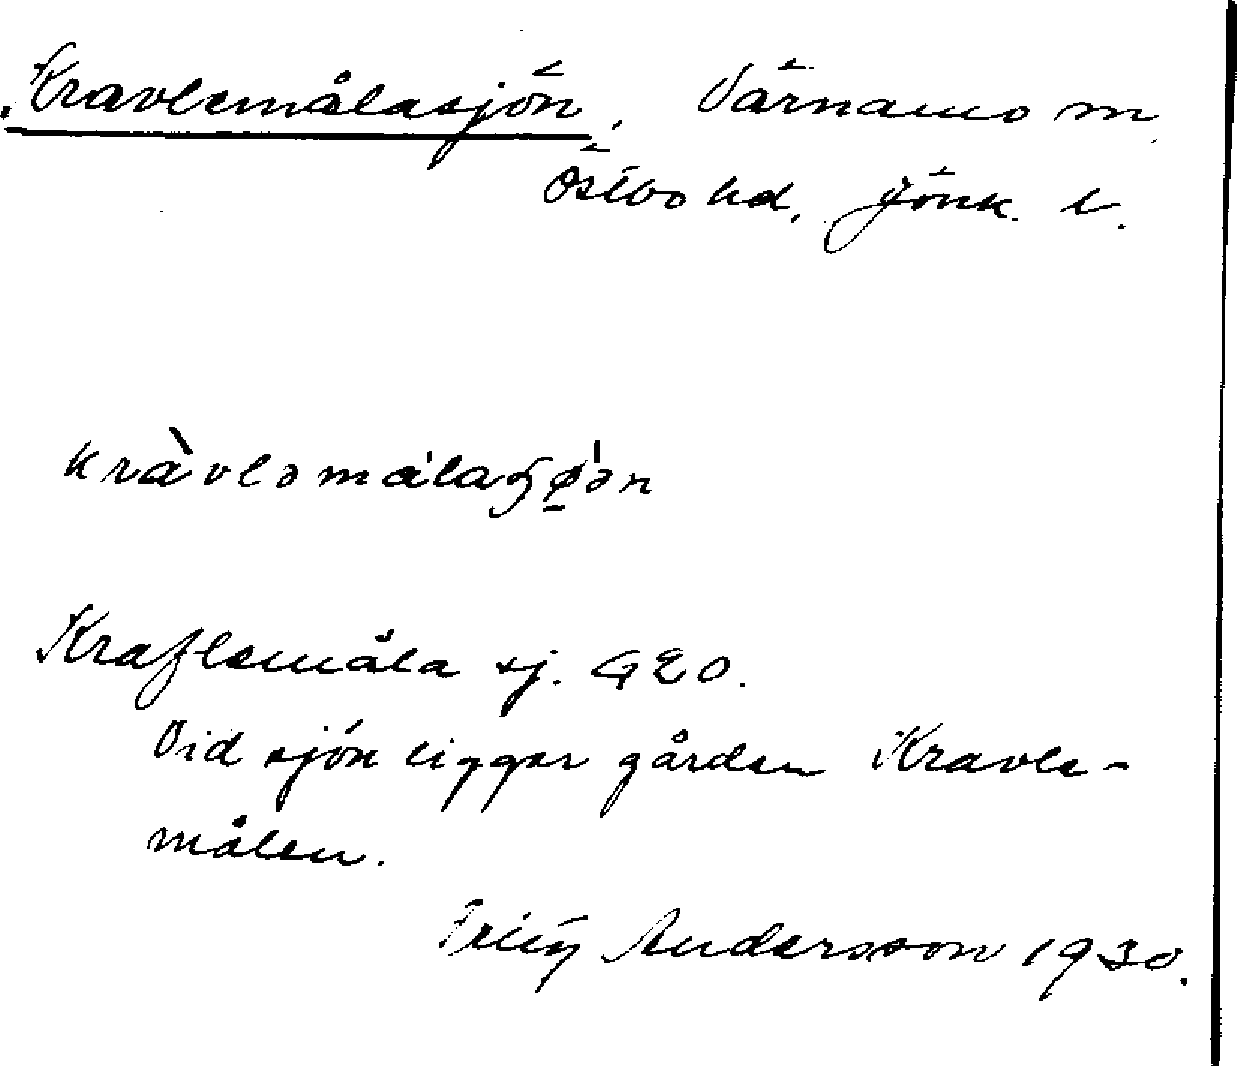 Kravlemålasjön, Värnamo m.
Östbo hd, Jönk. l.
kràvləmålaʂø̠ən
Kraflemåla sj. GEO.
Vid sjön ligger gården Kravle-
målen.
Andersson 1930.